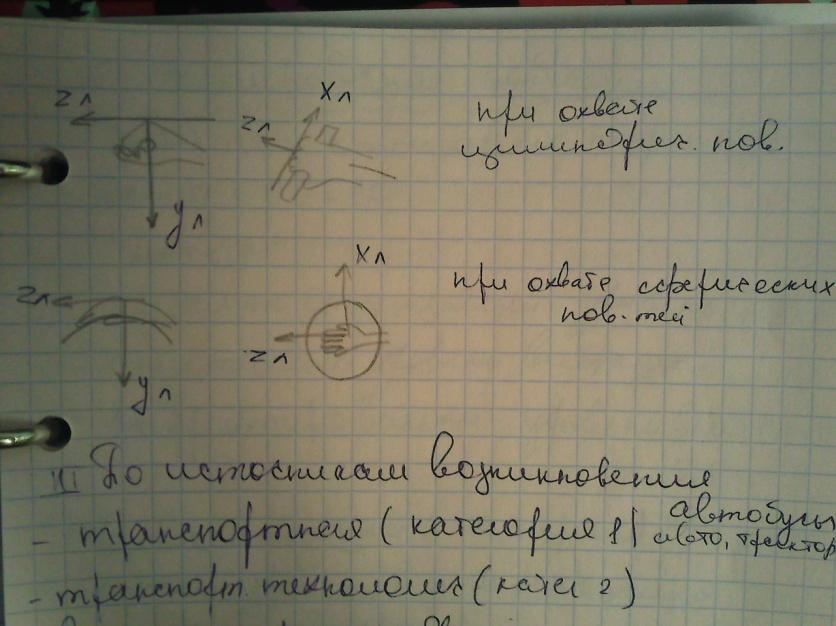 zл
yл
xл
zл
при охвате
цилиндрич. пов.
zл
yл
xл
zл
при охвате сферических
пов-тей
III По источникам возникновения
- транспортная (категория 1) автобусы
авто, трактор
- трансп. технологич (катег 2)